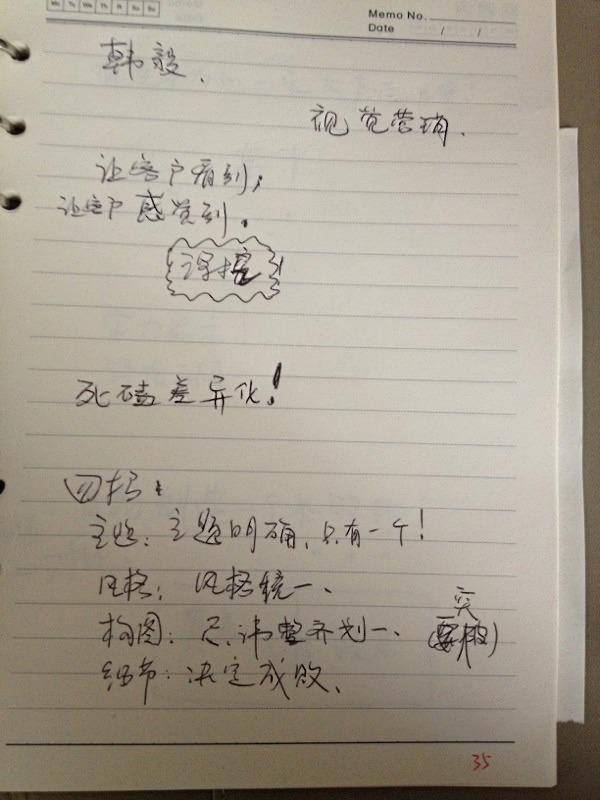 Mo Tu We Th Fr Sa Su
Memo No.
Date / /
韩毅.
视觉营销.
让客户看到;
让客户感觉到.
死磕差异化!
四招:
主题: 主题明确, 只有一个!
风格: 风格统一、
构图: 讲整齐划一、
突
细节: 决定成败、
35